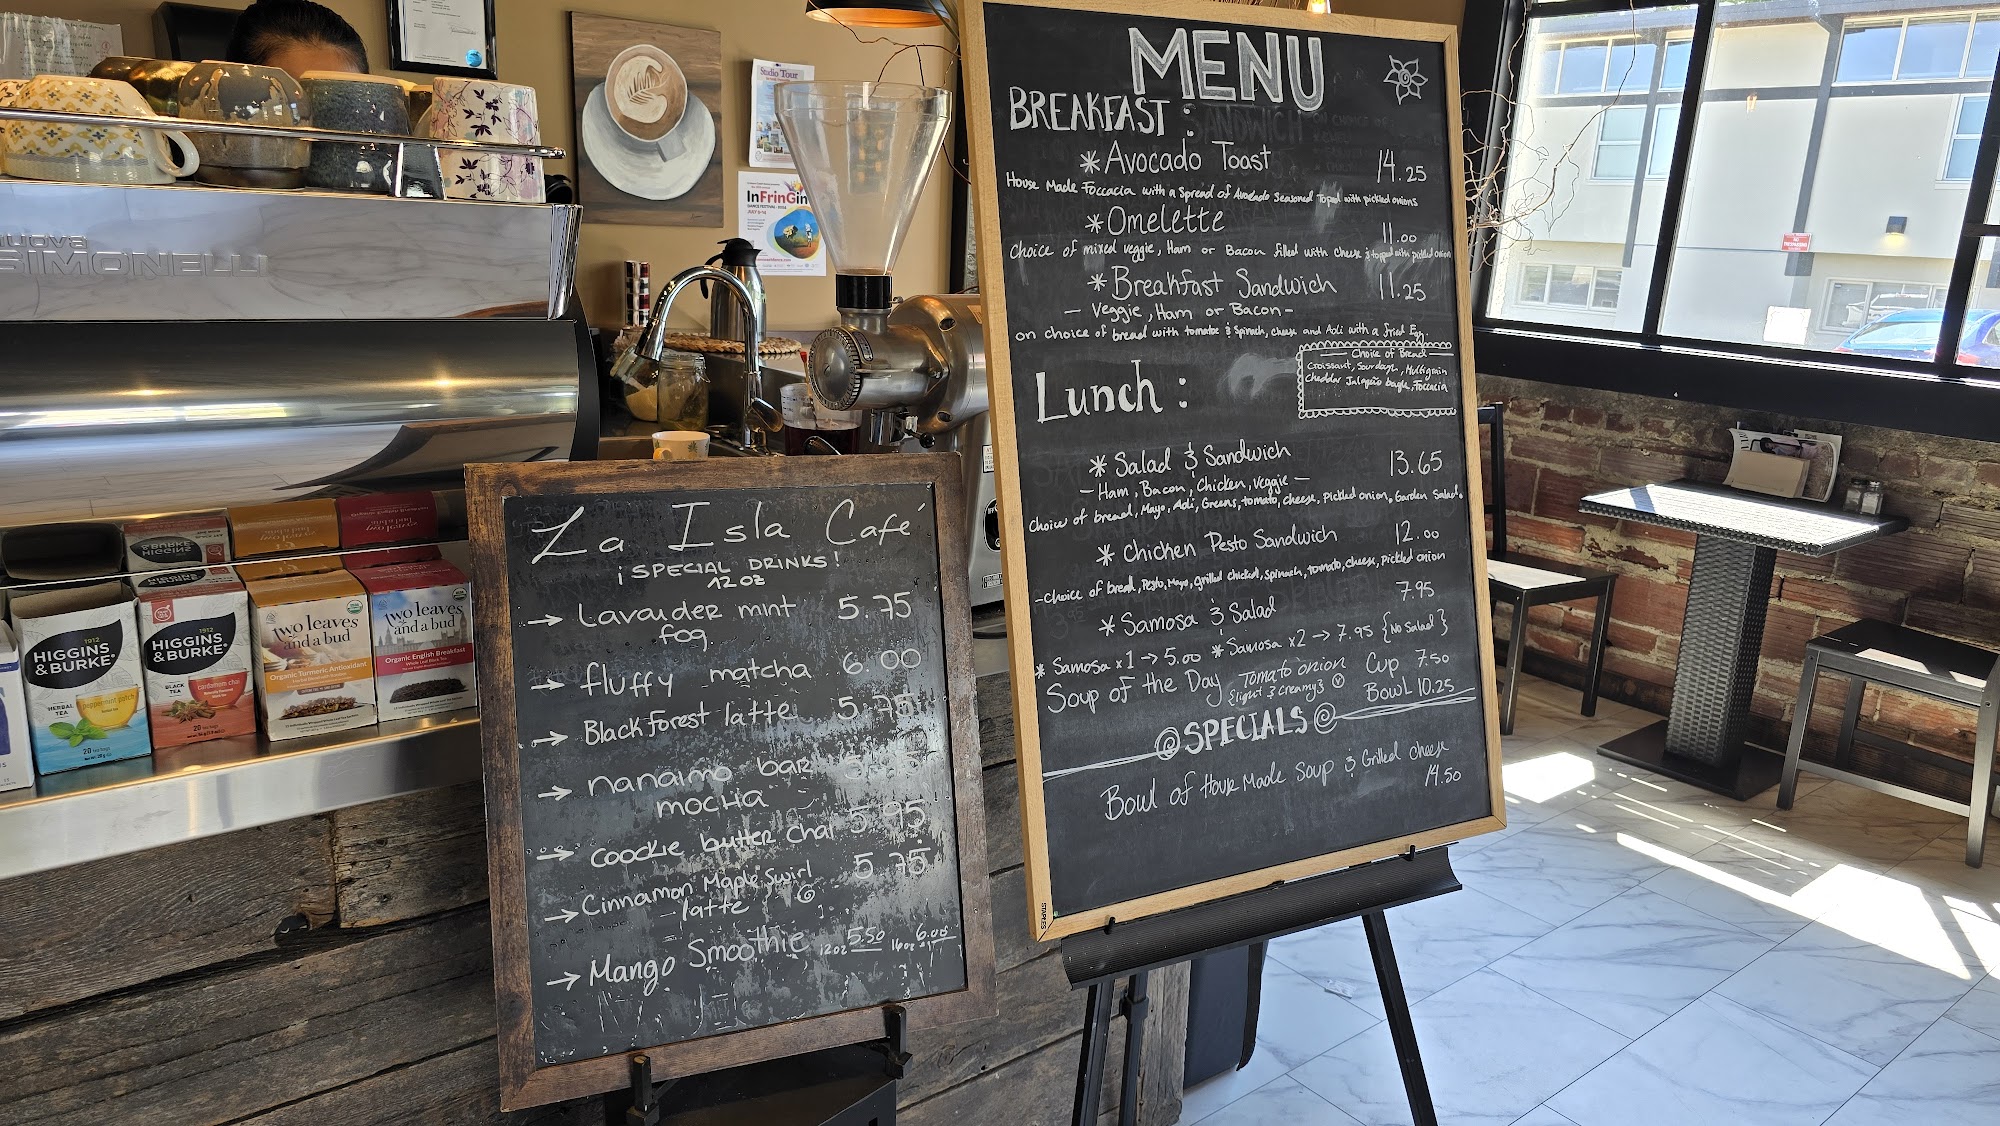 nuova
SIMONELLI
Studio Tour
InFrinGin
DANCE FESTIVAL
JULY 9-14
1912
HIGGINS
& BURKE
HERBAL
TEA
peppermint patch
20 tea bags
1912
HIGGINS
& BURKE
BLACK
TEA
cardamom chai
20 tea bags
two leaves
and a bud
Organic Turmeric Antioxidant
two leaves
and a bud
Organic English Breakfast
La Isla Café
¡SPECIAL DRINKS!
12 oz
→ Lavander mint 5.75
fog
→ fluffy matcha 6.00
→ Black forest latte 5.75
→ nanaimo bar 5.95
mocha
→ coockie butter chai 5.95
→ Cinnamon Maple Swirl 5.75
latte
→ Mango Smoothie 12oz 5.50 16oz 6.00
MENU
BREAKFAST :
* Avocado Toast 14.25
House Made Foccacia with a spread of Avocado Seasoned Toped with pickled onions
* Omelette 11.00
Choice of mixed veggie, Ham or Bacon filled with Cheese & topped with pickled onion
* Breakfast Sandwich 11.25
- Veggie, Ham or Bacon -
on choice of bread with tomatoe & Spinach, cheese and Aoli with a fried Egg.
Choice of Bread
Croissant, Sourdagh, Multigrain
Cheddar Jalapeño bagle, Foccacia
Lunch :
* Salad & Sandwich 13.65
- Ham, Bacon, Chicken, veggie -
Choice of bread, Mayo, Aoli, Greens, tomato, cheese, Pickled onion, Garden Salad.
* Chicken Pesto Sandwich 12.00
- Choice of bread, Pesto, Mayo, grilled chicken, spinach, tomato, cheese, Pickled onion
* Samosa & Salad 7.95
* Samosa x1 → 5.00 * Samosa x2 → 7.95 {No Salad}
Soup of the Day Tomato onion Cup 7.50
{light & Creamy} Ⓥ Bowl 10.25
SPECIALS
Bowl of House Made Soup & Grilled cheese
14.50
STAPLES